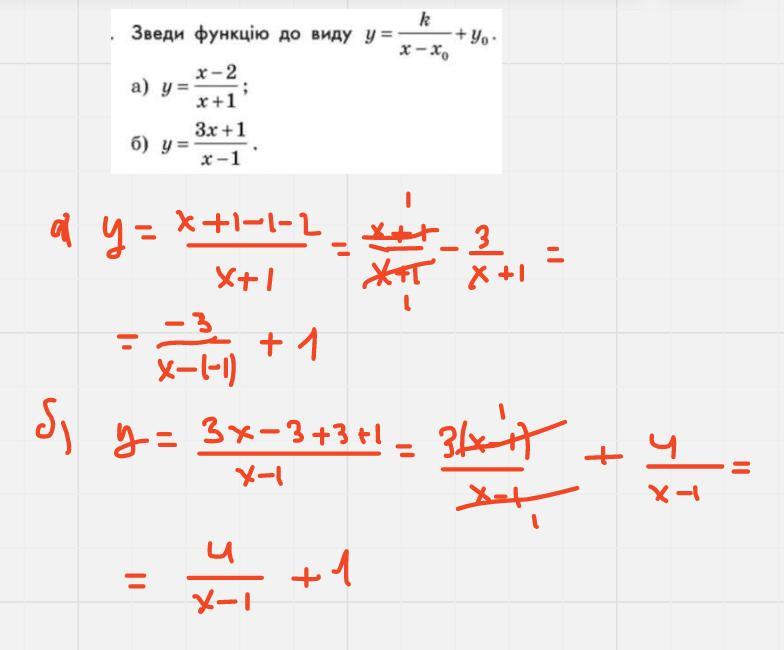 . Зведи функцію до виду y = k/(x − x₀) + y₀.
а) y = (x − 2)/(x + 1);
б) y = (3x + 1)/(x − 1).
а) y = (x + 1 − 1 − 2)/(x + 1) = (x + 1)/(x + 1) 1 1 − 3/(x + 1) =
= −3/(x − (−1)) + 1
б) y = (3x − 3 + 3 + 1)/(x − 1) = 3(x − 1)/(x − 1) 1 1 + 4/(x − 1) =
= 4/(x − 1) + 1